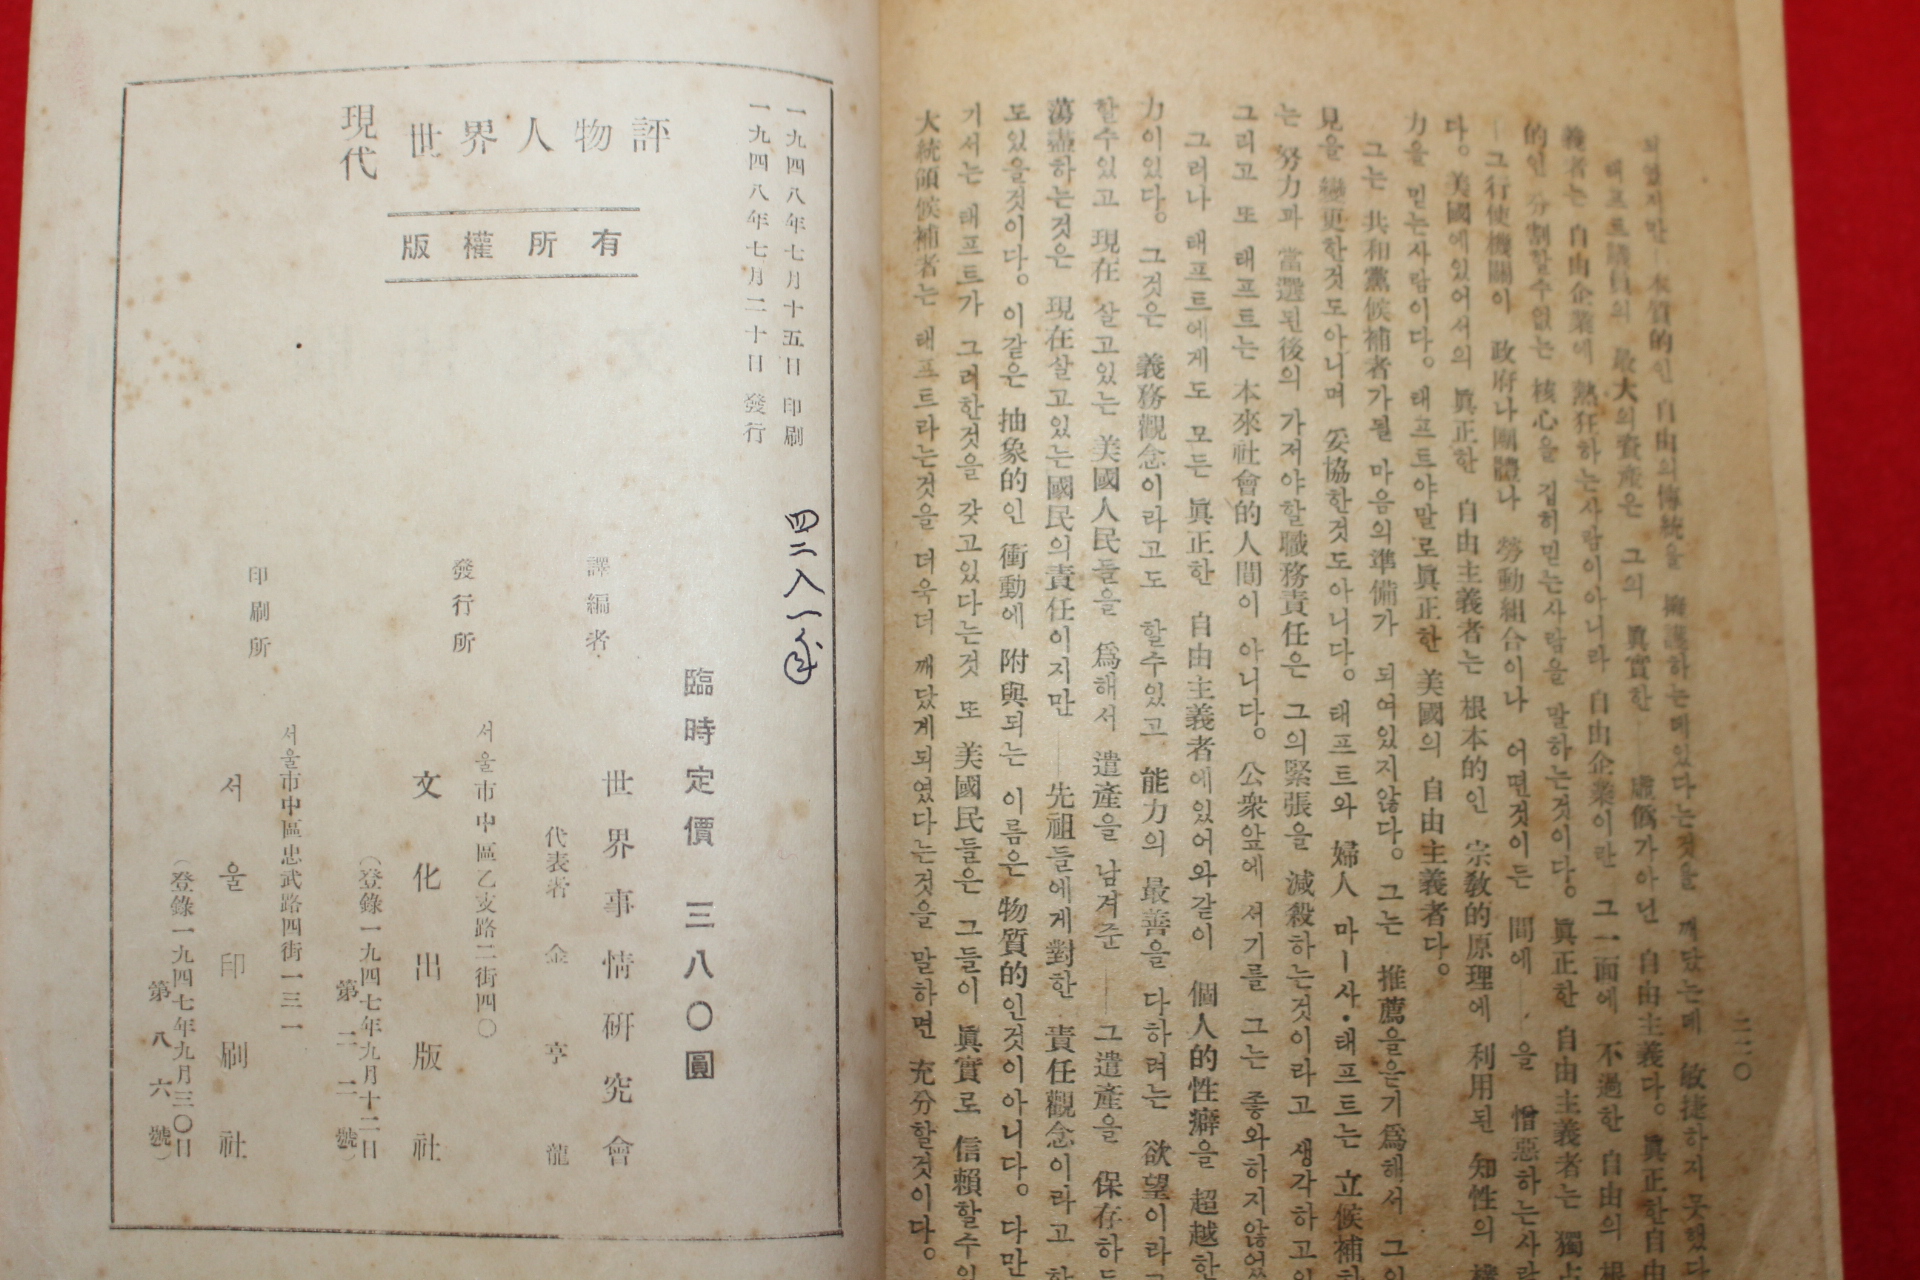 二二〇
되였지만─本質的인 自由의傳統을 擁護하는데있다는것을 깨닸는데 敏捷하지못했다
태프트議員의 最大의資產은 그의 眞實한─虛僞가아닌 自由主義다。眞正한自由
義者는 自由企業에 熱狂하는사람이아니라 自由企業이란 그一面에 不過한 自由의 根
的인 分割할수없는 核心을 깁히믿는사람을 말하는것이다。眞正한 自由主義者는 獨占
─그行使機關이 政府나團體나 勞動組合이나 어떤것이든 間에─을 憎惡하는사람
다。美國에있어서의 眞正한 自由主義者는 根本的인 宗敎的原理에 利用된 知性의 權
力을 믿는사람이다。태프트야말로眞正한 美國의 自由主義者다。
그는 共和黨候補者가될 마음의準備가 되여있지않다。그는 推薦을윤기爲해서 그의
見을 變更한것도아니며 妥協한것도아니다。태프트와 婦人 마ー사・태프트는 立候補하
는 努力과 當選된後의 가저야할職務責任은 그의緊張을 減殺하는것이라고 생각하고있
그리고 또 태프트는 本來社會的人間이 아니다。公衆앞에 서기를 그는 좋와하지않었
그러나 태프트에게도 모든 眞正한 自由主義者에있어와같이 個人的性癖을 超越한
力이있다。그것은 義務觀念이라고도 할수있고 能力의 最善을 다하려는 欲望이라고
할수있고 現在 살고있는 美國人民들을 爲해서 遺產을 남겨준─그遺產을 保存하는
蕩盡하는것은 現在살고있는國民의責任이지만─先祖들에게對한 責任觀念이라고 할
도있을것이다。이같은 抽象的인 衝動에 附與되는 이름은 物質的인것이아니다。다만
기서는 태프트가 그러한것을 갖고있다는것 또 美國民들은 그들이 眞實로 信賴할수있
大統領候補者는 태프트라는것을 더욱더 깨닸게되였다는것을 말하면 充分할것이다。
一九四八年七月十五日 印刷
一九四八年七月二十日 發行
四二八一年
現代 世界人物評
版權所有
臨時定價 三八〇圓
譯編者 世界事情硏究會
代表者 金亨龍
서울市中區乙支路二街四〇
發行所 文化出版社
（登錄一九四七年九月十二日
第二二號）
서울市中區忠武路四街一三一
印刷所 서울印刷社
（登錄一九四七年九月三〇日
第八六號）